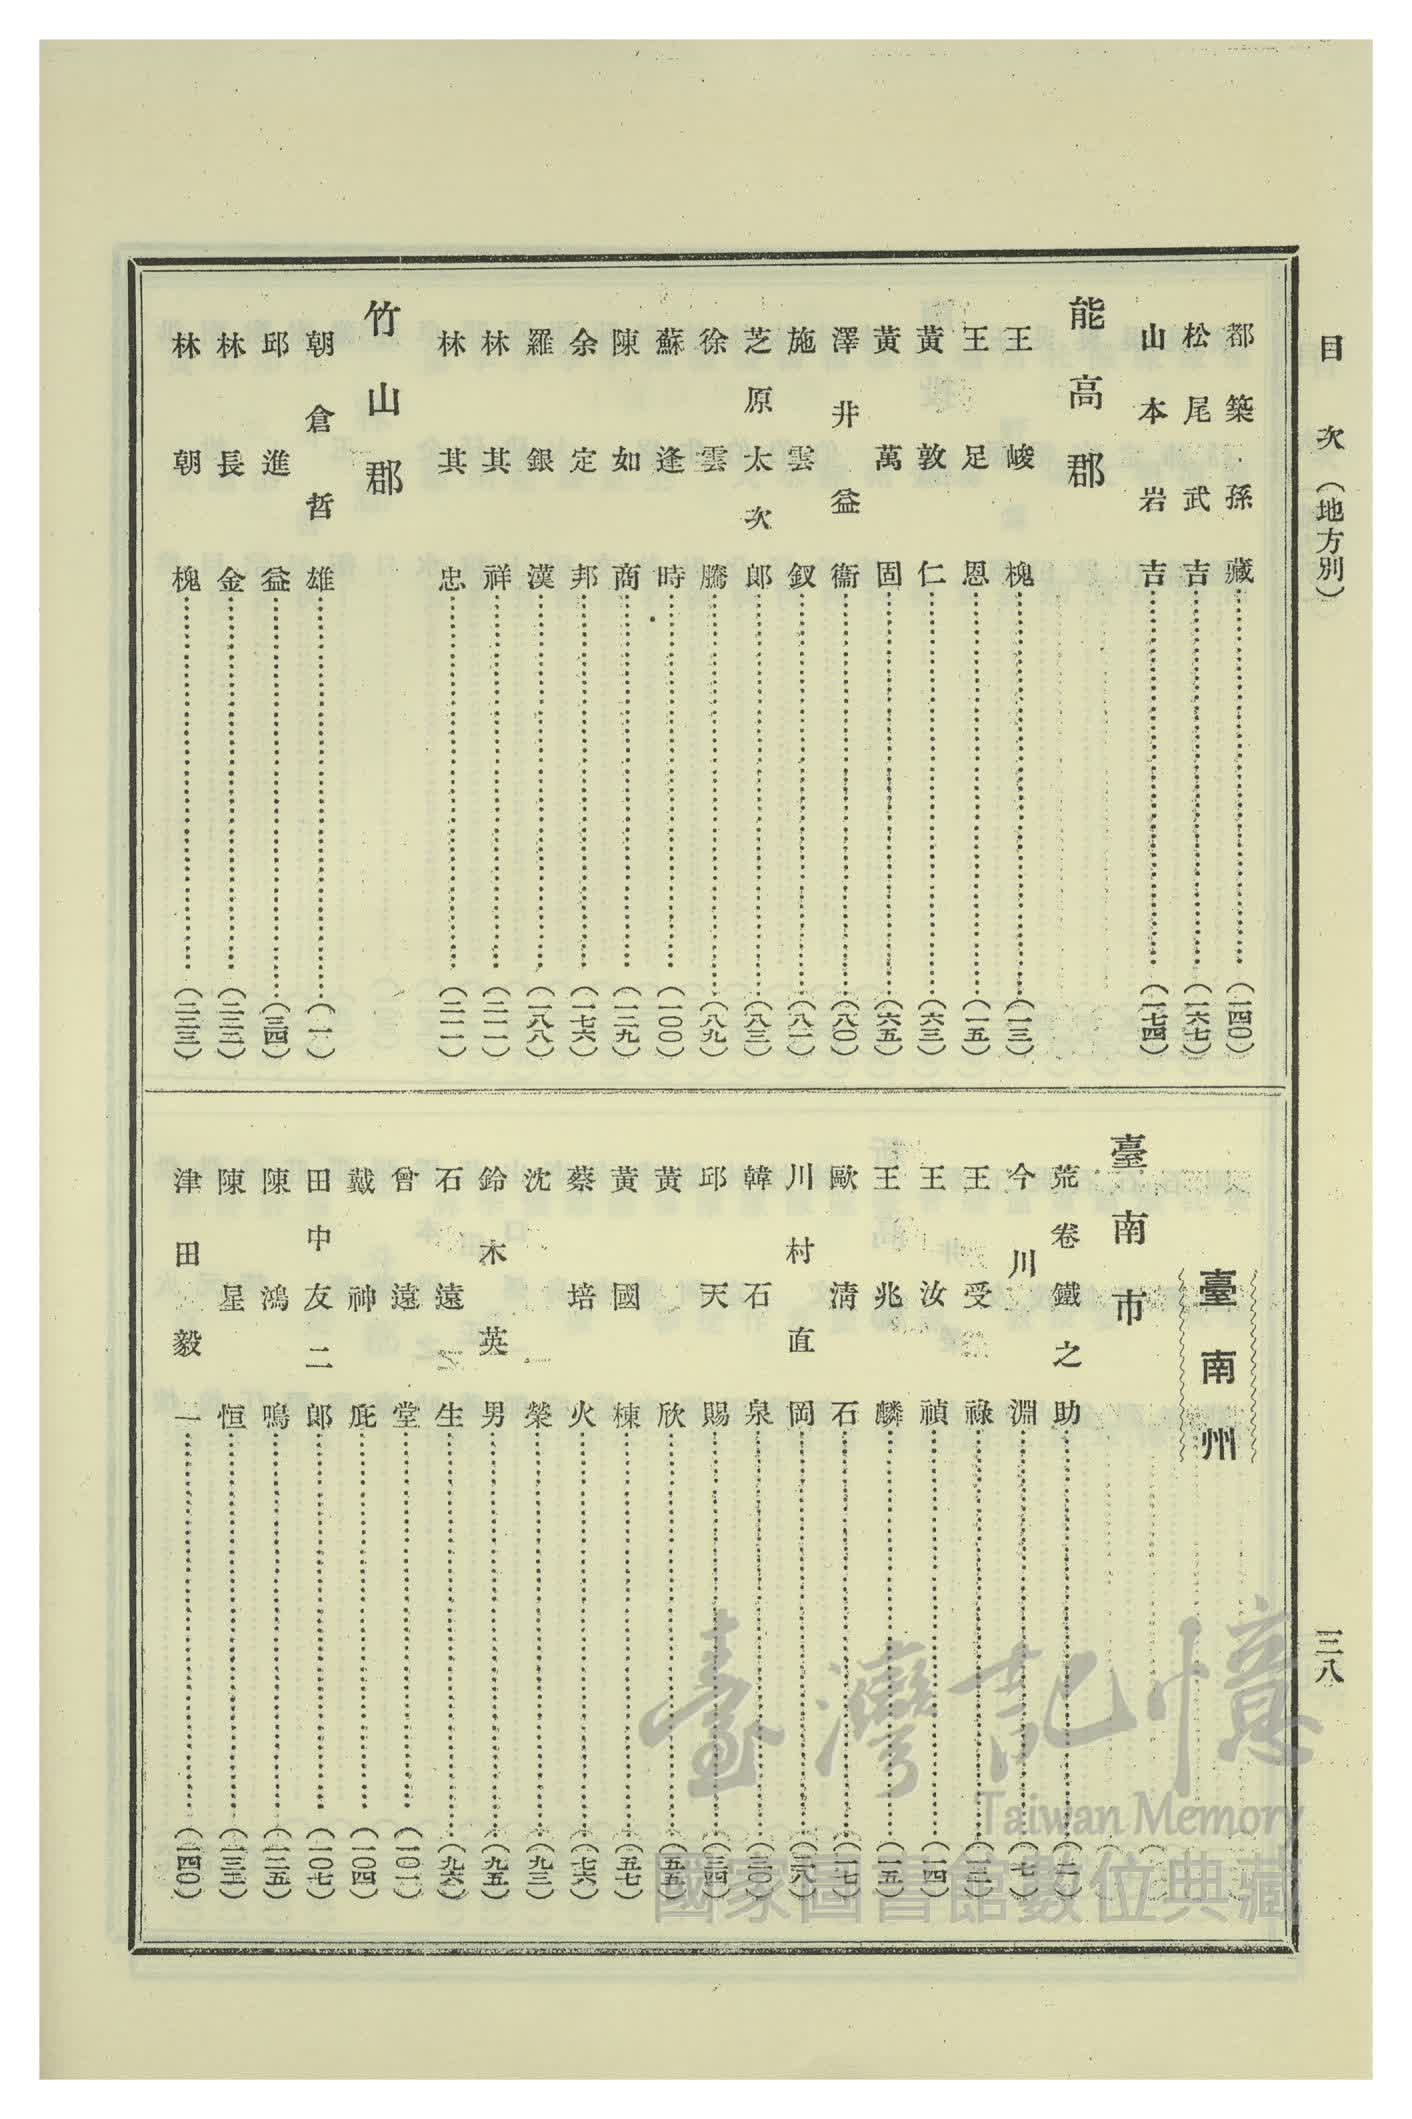 目次（地方別）
三八
都築孫藏（一四〇）
松尾武吉（一六七）
山本岩吉（一七四）
能高郡
王峻槐（一三）
王足恩（一五）
黃敦仁（六三）
黃萬固（六五）
澤井益衞（八〇）
施雲釵（八一）
芝原太次郎（八三）
徐雲騰（八九）
蘇逢時（一〇〇）
陳如商（一二九）
余定邦（一七六）
羅銀漢（一八八）
林其祥（二一一）
林其忠（二一一）
竹山郡
朝倉哲雄（一）
邱進益（三四）
林長金（二二二）
林朝槐（二二三）
臺南州
臺南市
荒卷鐵之助（二）
今川淵（七）
王受祿（一三）
王汝禎（一四）
王兆麟（一五）
歐清石（一七）
川村直岡（二八）
韓石泉（三〇）
邱天賜（三四）
黃欣（五五）
黃國棟（五七）
蔡培火（七六）
沈榮（九三）
鈴木英男（九五）
石遠生（九六）
曾遠堂（一〇一）
戴神庇（一〇四）
田中友二郎（一〇七）
陳鴻鳴（一二五）
陳星恒（一三三）
津田毅一（一四〇）
臺灣記憶
Taiwan Memory
國家圖書館數位典藏